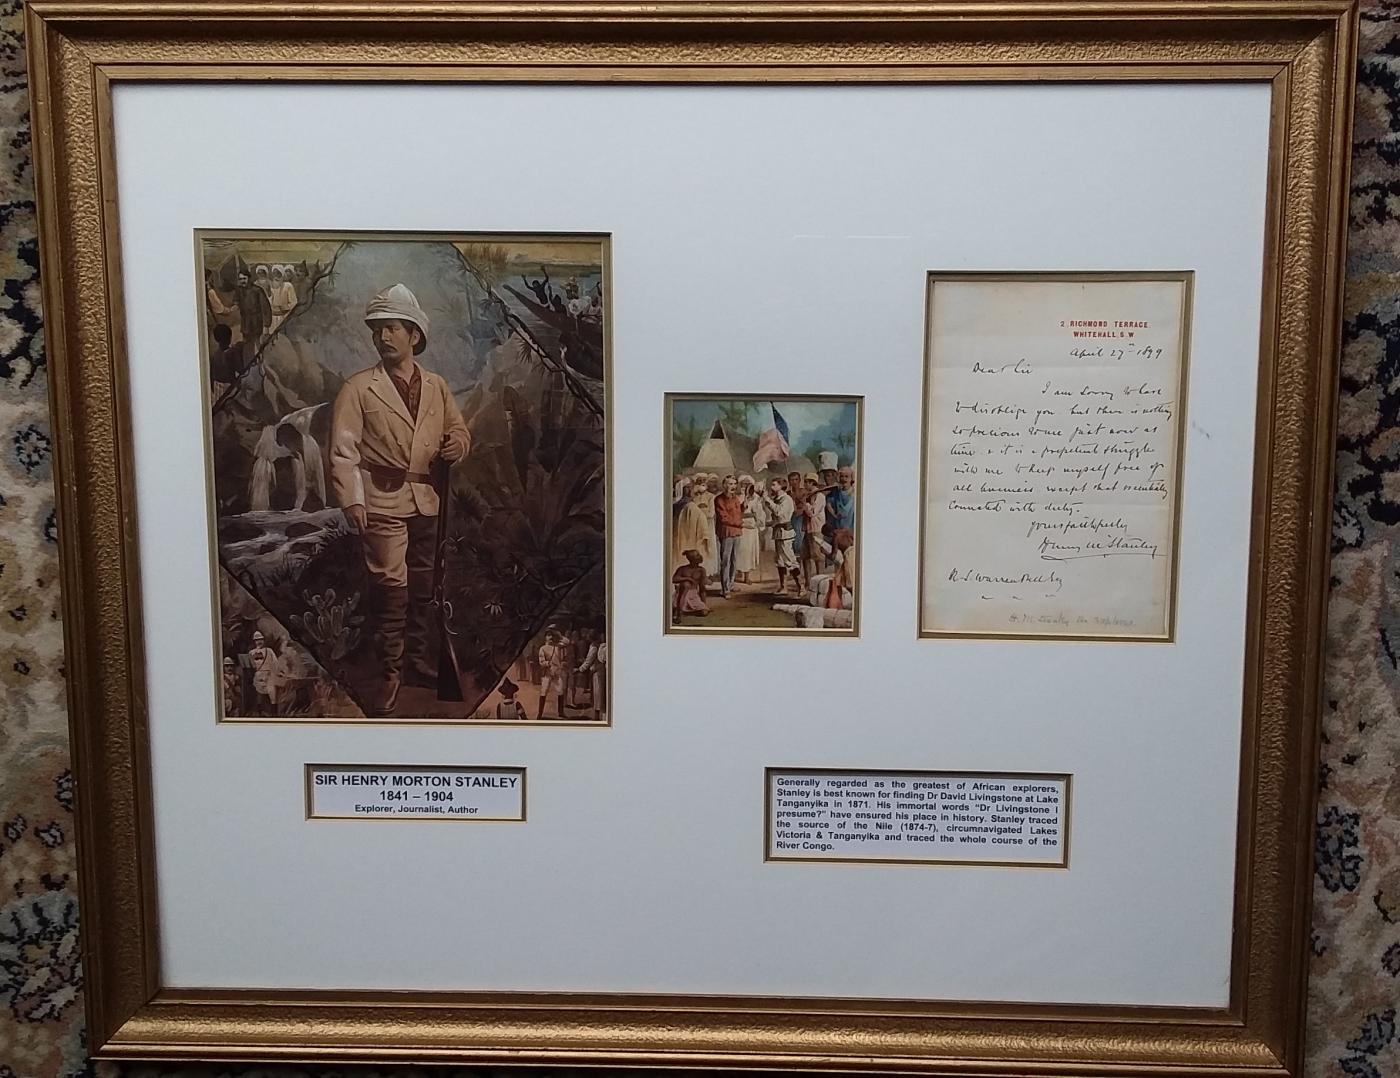 2, RICHMOND TERRACE.
WHITEHALL, S.W.
April 27th 1899
Dear Sir
I am sorry to have
to disoblige you. but there is nothing
so precious to me just now as
time. & it is a perpetual struggle
with me to keep myself free of
all business except that
connected with duty.
Yours faithfully
Henry M Stanley
R. S. Warren Bell Esq
H. M. Stanley the explorer.
SIR HENRY MORTON STANLEY
1841 – 1904
Explorer, Journalist, Author
Generally regarded as the greatest of African explorers,
Stanley is best known for finding Dr David Livingstone at Lake
Tanganyika in 1871. His immortal words “Dr Livingstone I
presume?” have ensured his place in history. Stanley traced
the source of the Nile (1874-7), circumnavigated Lakes
Victoria & Tanganyika and traced the whole course of the
River Congo.